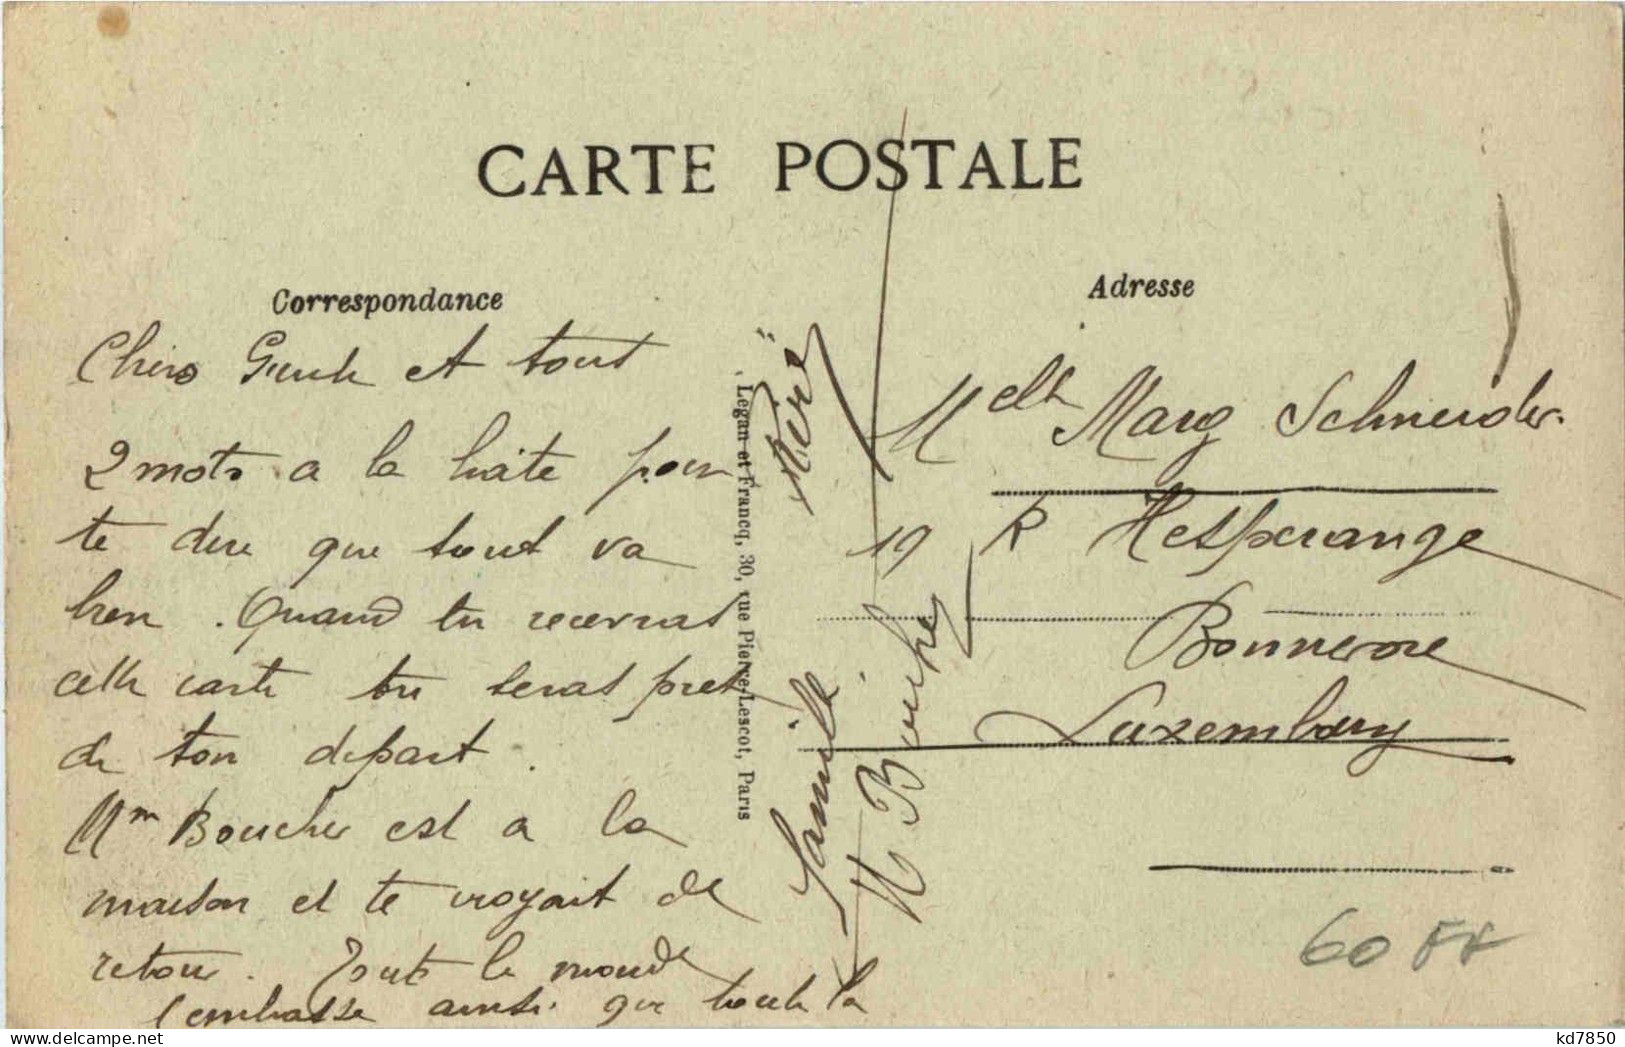 CARTE POSTALE
Correspondance
Adresse
Chère et tout
2 mots a la hâte pour
te dire que tout va
bien. Quand tu recevras
cette carte tu seras pret
de ton depart.
Mm Boucher est a la
maison et te croyait de
retour. Tout le monde
t'embrasse ainsi que toute la
famille
M Boucher
Legan et Francq, 30, rue Pierre-Lescot, Paris
Melle Marg Schneider.
19 R Hesperange
Bonnevoie
Luxembourg
60 FF
kd7850